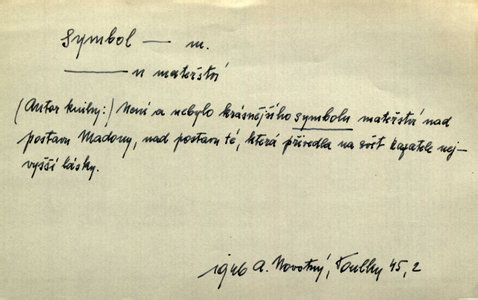 Symbol — m.
——— n mateřství
(Autor knihy:) Není a nebylo krásnějšího symbolu mateřství nad
postavu Madony, nad postavu té, která přivedla na svět kazatele nej-
vyšší lásky.
1946 A. Novotný, Toulky 45, 2